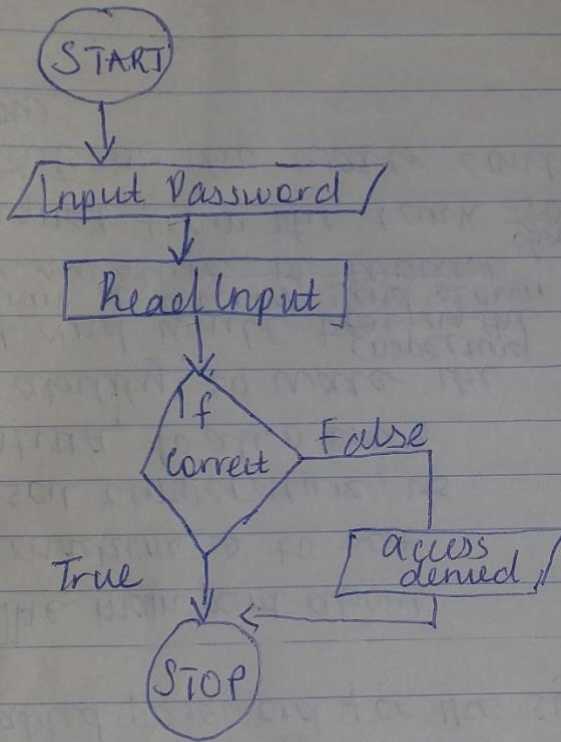 START
Input Password
Read Input
If
correct
False
access
denied
True
STOP